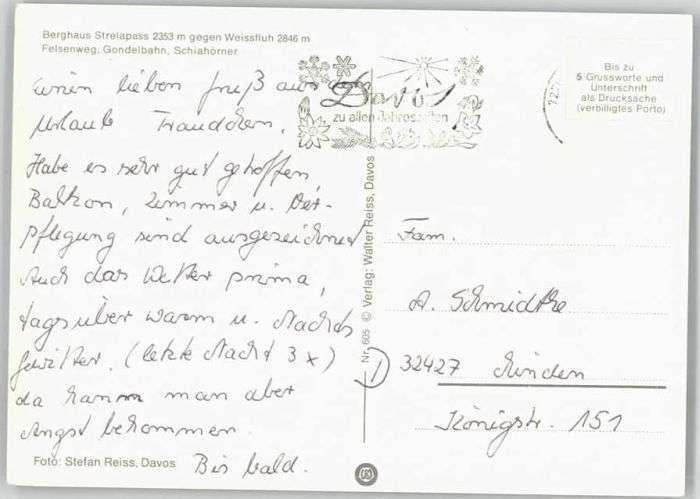 Berghaus Strelapass 2353 m gegen Weissfluh 2846 m
Felsenweg, Gondelbahn, Schiahörner
lieben Gruß aus dem
Urlaub Traudchen.
Habe es sehr gut getroffen
Balkon, Zimmer u. Ver-
pflegung sind ausgezeichnet
Auch das Wetter prima,
tagsüber warm u. Nachts
Gewitter. (letzte Nacht 3 x)
da kann man aber
Angst bekommen
Bis bald.
Foto: Stefan Reiss, Davos
Davos
zu allen Jahreszeiten
Bis zu
5 Grussworte und
Unterschrift
als Drucksache
(verbilligtes Porto)
Nr. 605 © Verlag: Walter Reiss, Davos
Fam.
A. Schmidtke
D 32427 Minden
Königstr. 151